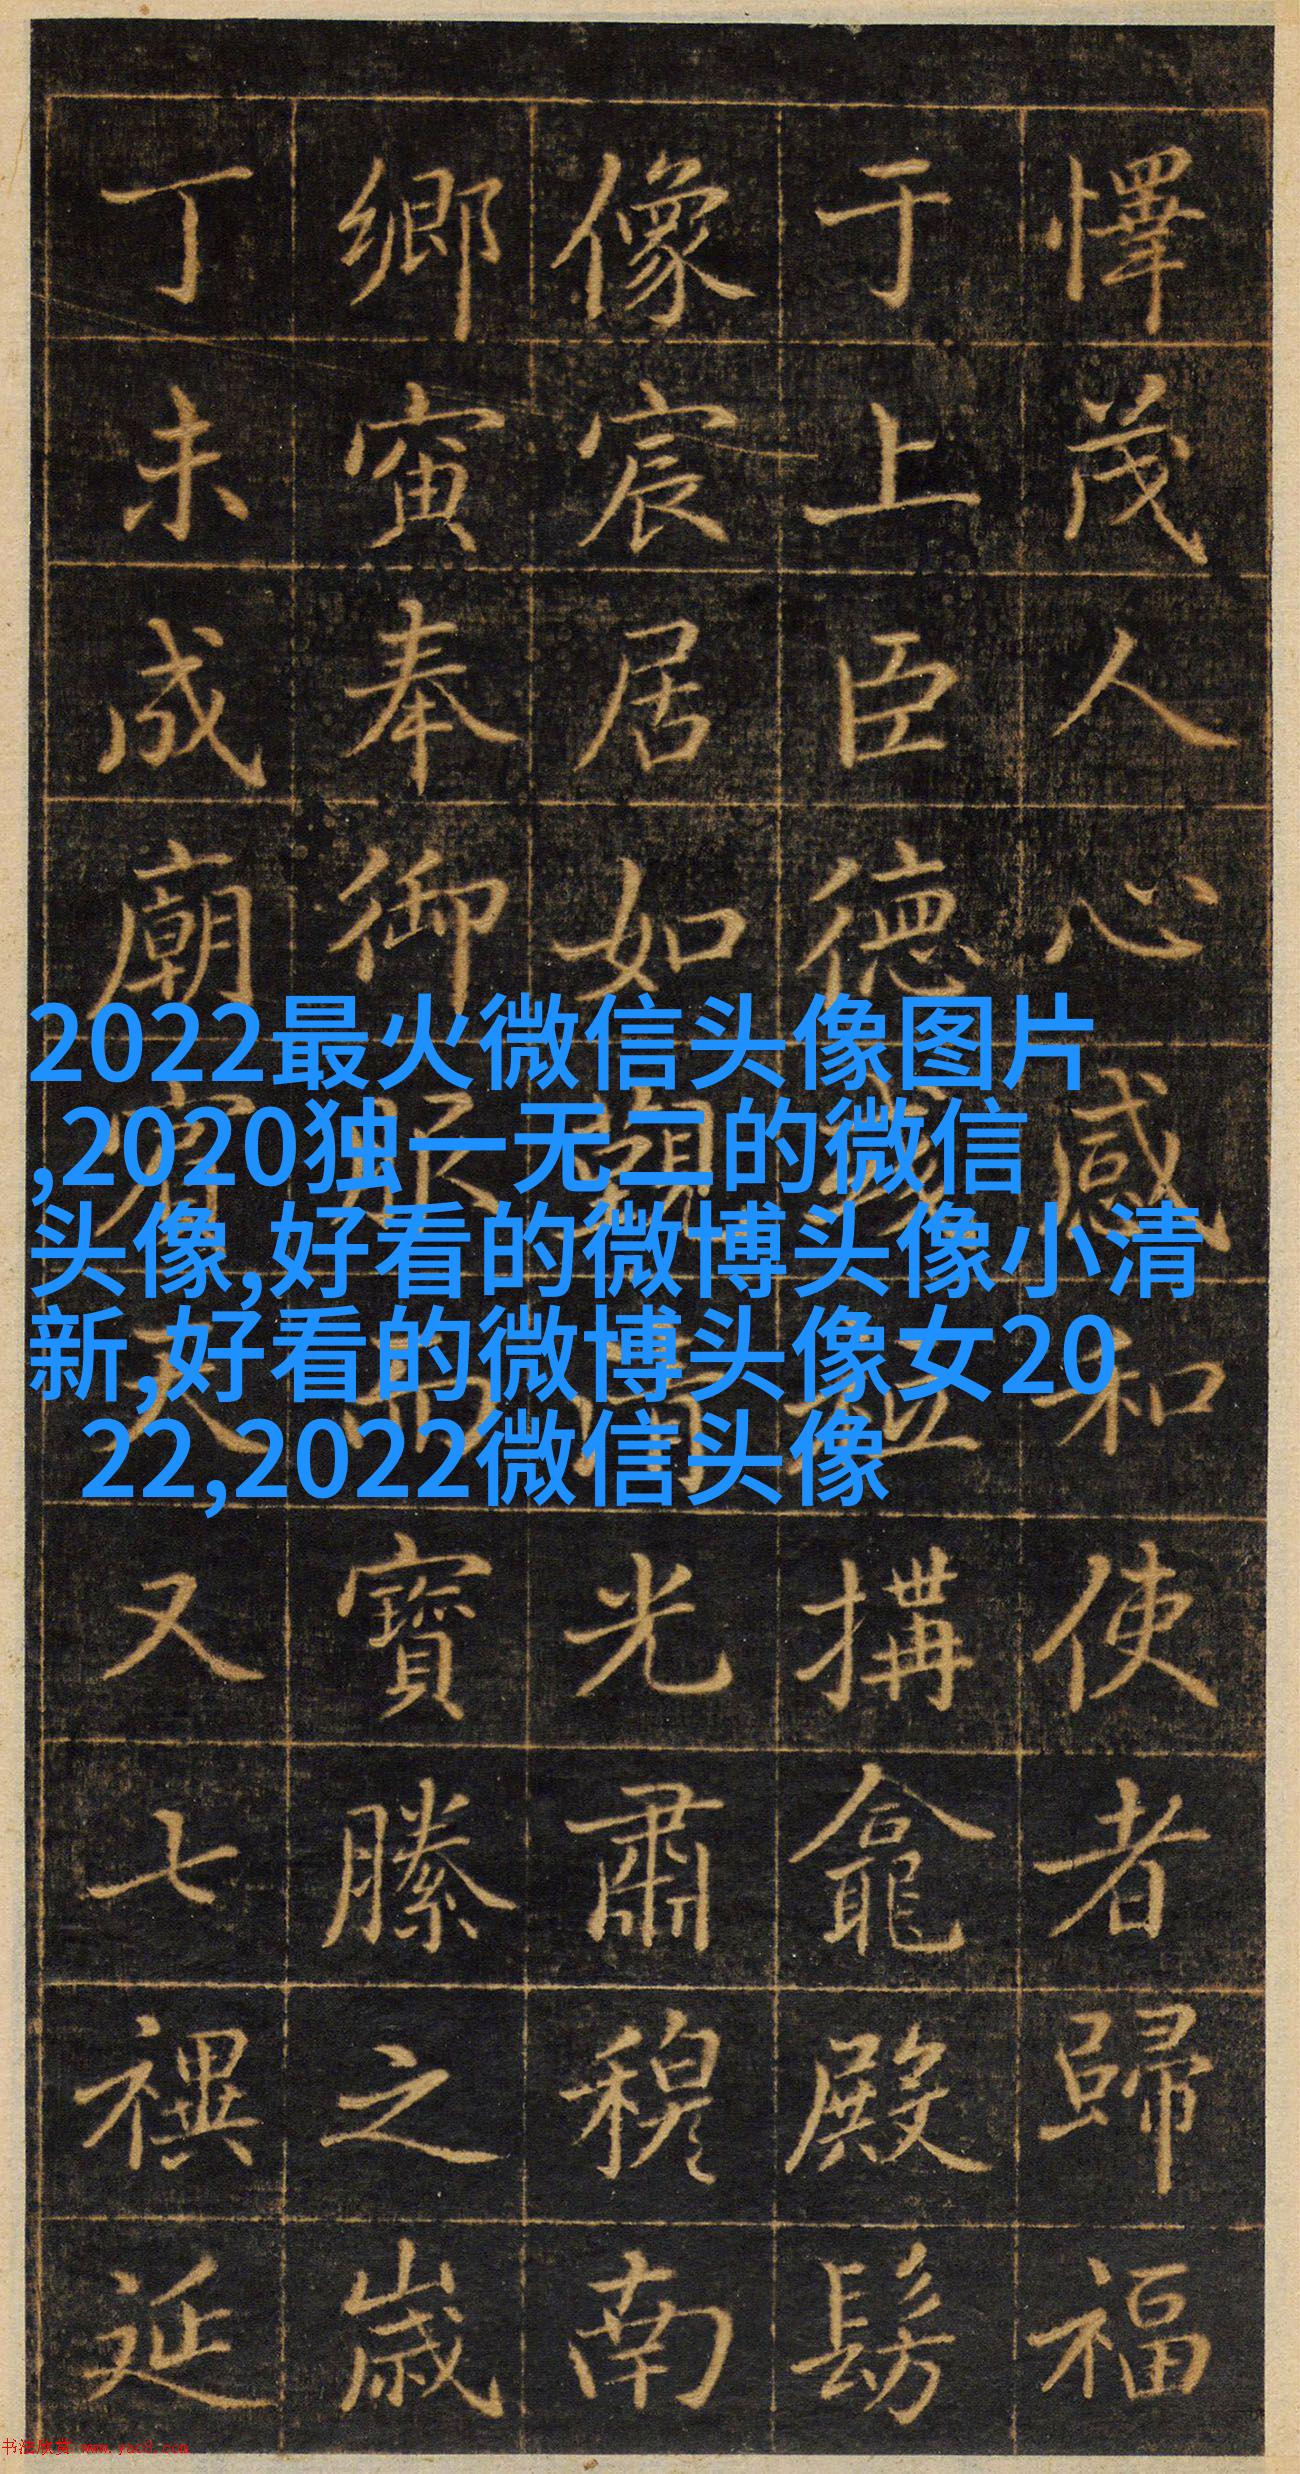 懌茂人心感和使者歸福
于上臣德搆龕殿髣
像宸居如光肅穆南
鄉寅奉御服而寶縢之歲
丁未成廟又七禩延
2022最火微信头像图片
,2020独一无二的微信
头像,好看的微博头像小清
新,好看的微博头像女20
22,2022微信头像
书法欣赏 www.yac8.com